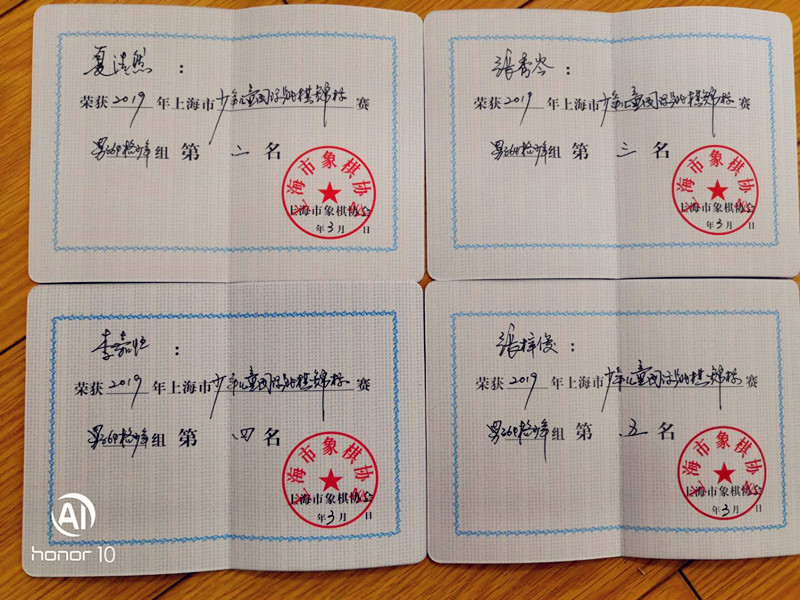 夏浩然：
荣获2019年上海市少年儿童国际跳棋锦标赛
男64格少年组 第二名
上海市象棋协会
上海市象棋协会
年3月 日
張：
荣获2019年上海市少年儿童国际跳棋锦标赛
男64格少年组 第三名
上海市象棋协会
上海市象棋协会
年3月 日
李嘉恒：
荣获2019年上海市少年儿童国际跳棋锦标赛
男64格少年组 第四名
上海市象棋协会
上海市象棋协会
年3月 日
張梓俊：
荣获2019年上海市少年儿童国际跳棋锦标赛
男64格少年组 第五名
上海市象棋协会
上海市象棋协会
年3月 日
AI
honor 10